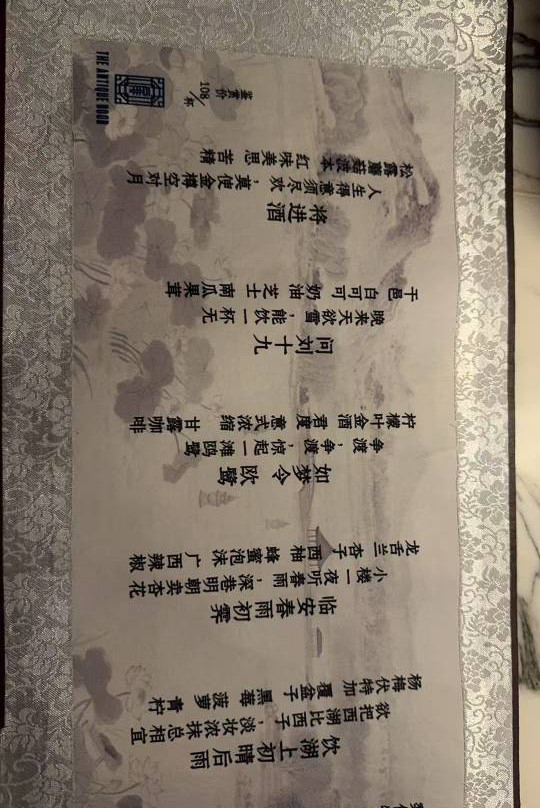 饮湖上初晴后雨
欲把西湖比西子，淡妆浓抹总相宜
杨梅伏特加 覆盆子 黑莓 菠萝 青柠
临安春雨初霁
小楼一夜听春雨，深巷明朝卖杏花
龙舌兰 杏子 西柚 蜂蜜泡沫 广西辣椒
如梦令 欧鹭
争渡，争渡，惊起一滩鸥鹭
柠檬叶金酒 君度 意式浓缩 甘露咖啡
问刘十九
晚来天欲雪，能饮一杯无
干邑 白可可 奶油 芝士 南瓜果茸
将进酒
人生得意须尽欢，莫使金樽空对月
松露蘑菇波本 红味美思 苦精
鉴赏价
108/杯
THE ANTIQUE DOOR